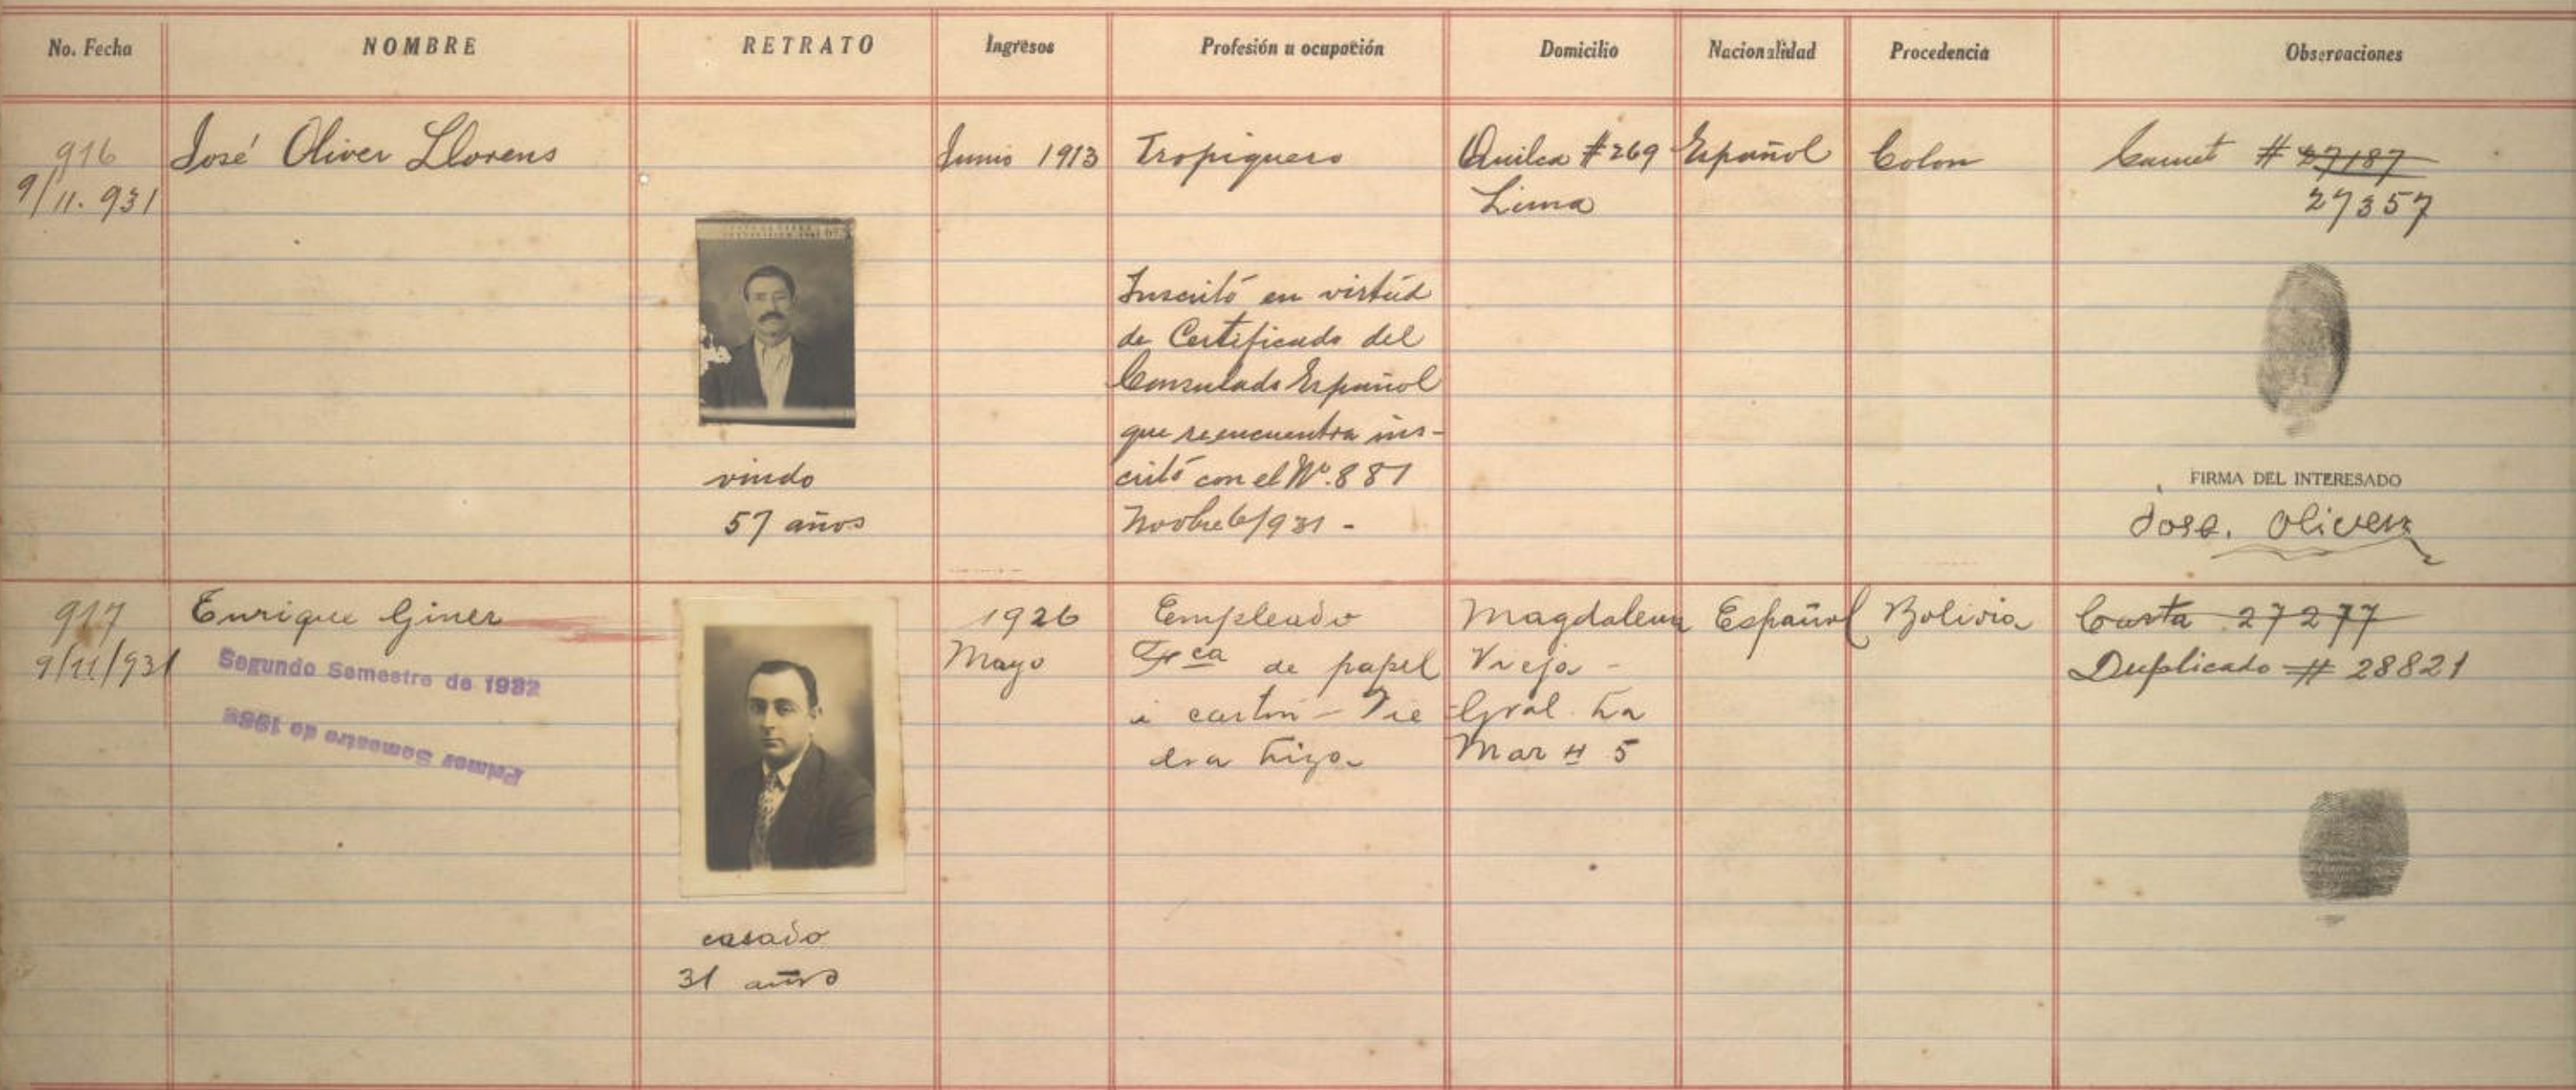 No. Fecha NOMBRE RETRATO Ingresos Profesión u ocupación Domicilio Nacionalidad Procedencia Observaciones
916
9/11.931
José Oliver Llorens
viudo
57 años
Junio 1913
Tropiquero
Inscritó en virtúd
de Certificado del
Consulado Español
que se encuentra ins-
critó con el Nº. 887
Novbre 6/931 -
Quilca #269
Lima
Español
Colon
Carnet # 27187
27357
FIRMA DEL INTERESADO
José. Oliver
917
9/11/931
Enrique Giner
Segundo Semestre de 1932
Primer Semestre de
casado
31 años
1926
Mayo
Empleado
Fca de papel
i carton - Pie
dra liza
Magdalena
Vieja -
Gral. La
Mar # 5
Español
Bolivia
Carta 27277
Duplicado # 28821